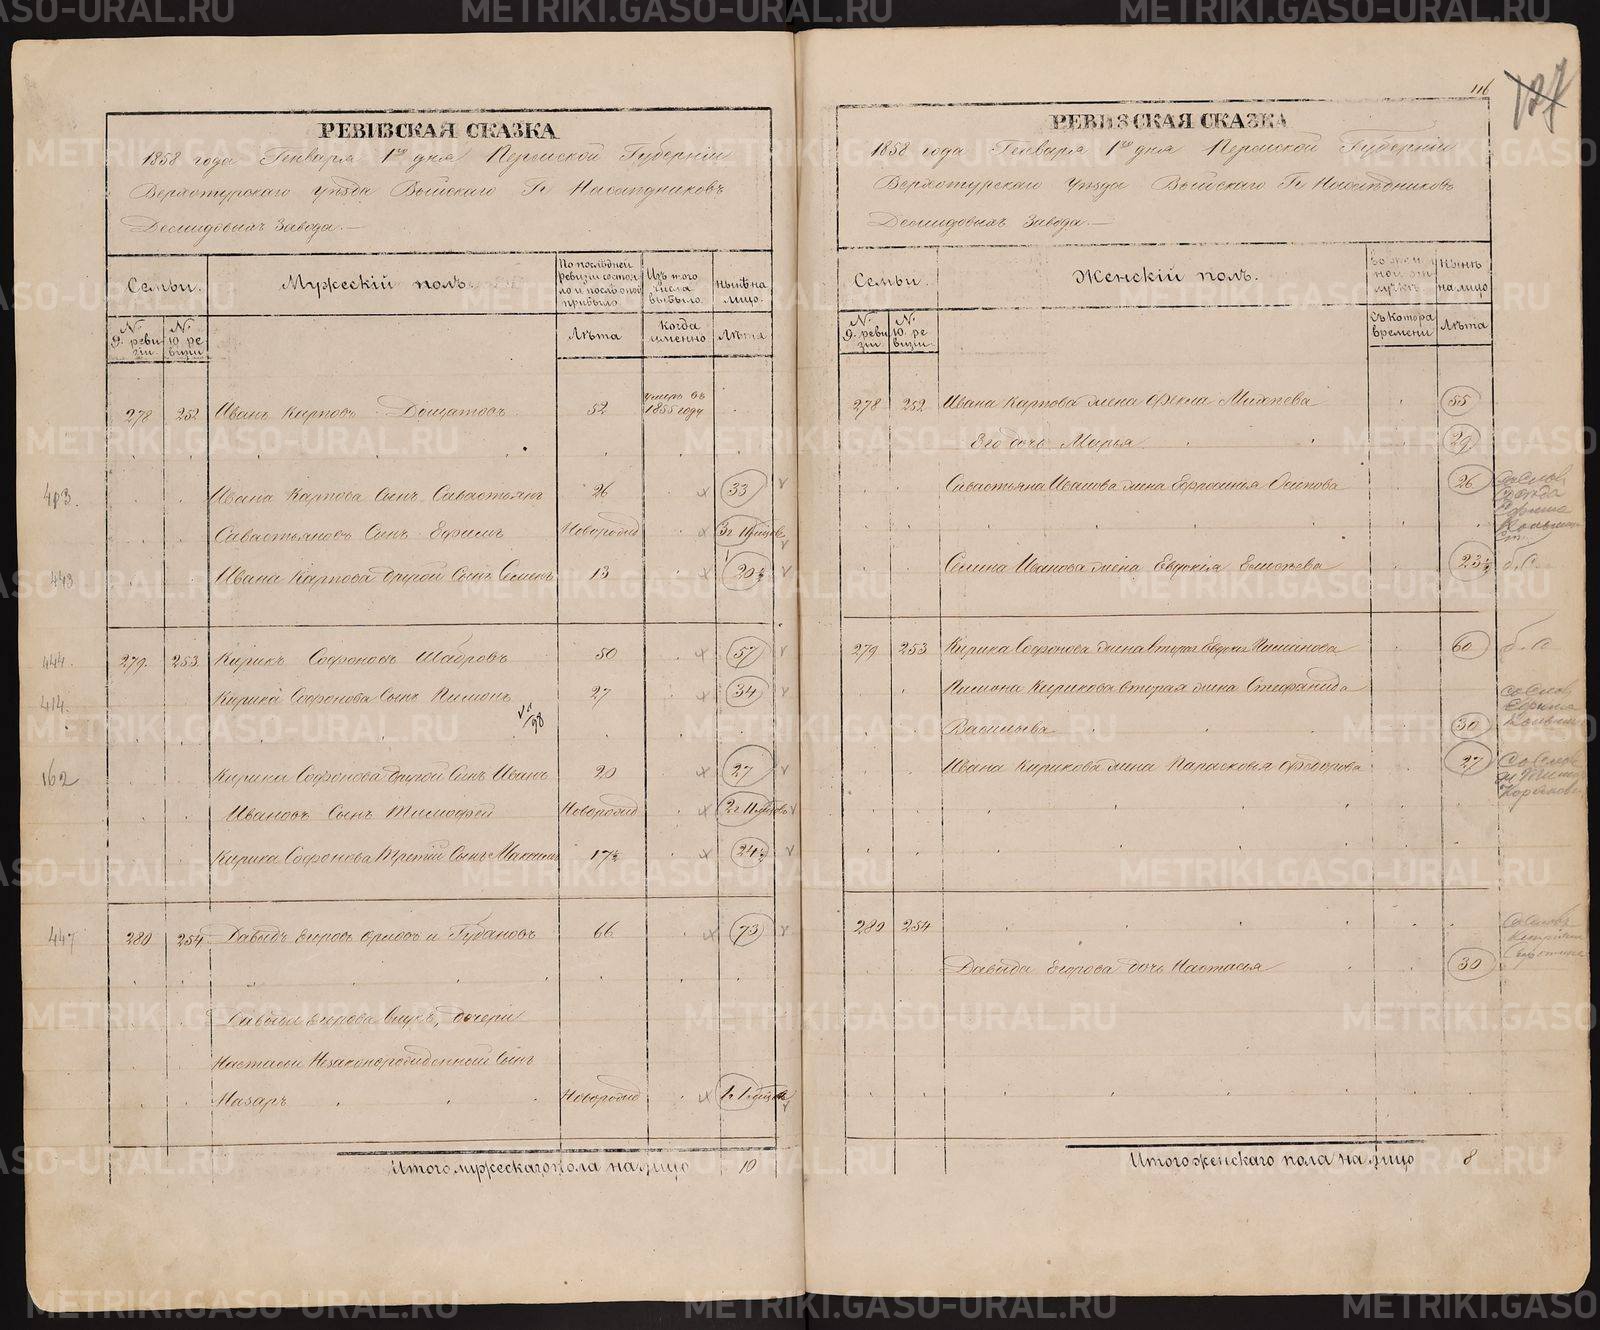 РЕВИЗСКАЯ СКАЗКА
1858 года Генваря 1го дня Пермской Губерніи
Верхотурскаго уѣзда Выйскаго Гг Наслѣдниковъ
Демидовыхъ Завода.—
Семьи.
Мужескій полъ.
По послѣдней ревизіи состояло и послѣ оной прибыло.
Изъ того числа выбыло.
Нынѣ на лицо.
№ 9. ревизіи
№ 10 ревизіи
Лѣта
Когда именно
Лѣта
278 252 Иванъ Карповъ Дощатовъ 52 умеръ въ 1855 году
Ивана Карпова Сынъ Савастьянъ 26 33
Савастьяновъ Сынъ Ефимъ Новорожд
443 Ивана Карпова другой Сынъ Семенъ 13 20½
444. 279. 253 Кирикъ Софоновъ Шабровъ 50 57
414. Кирика Софонова Сынъ Пимонъ 27 34
162 Кирика Софонова другой Сынъ Иванъ 20 27
Ивановъ Сынъ Тимофей Новорожд
Кирика Софонова Третій Сынъ Максимъ 17½ 24½
447 280 254 Давыдъ Егоровъ Орловъ и Губановъ 66 73
Давыда Егорова Внукъ, дочери
Настасьи Незаконорожденный Сынъ
Назаръ Новорожд
Итого мужескаго пола на лицо 10
116
127
РЕВИЗСКАЯ СКАЗКА
1858 года Генваря 1го дня Пермской Губерніи
Верхотурскаго уѣзда Выйскаго Гг Наслѣдниковъ
Демидовыхъ Завода.—
Семьи.
Женскій полъ.
Во временной отлучкѣ.
Нынѣ на лицо
№ 9. ревизіи.
№ 10. ревизіи.
Съ котора времени
Лѣта
278 252 Ивана Карпова жена Михеева 55
Его дочь Марья 29
Савастьяна Иванова жена Ефросинія Осипова 26
Семина Иванова жена Евгенія Елисеева 23½
279 253 Кирика Софонова жена вторая 60
Пимона Кирикова вторая жена Стефанида
Васильева 30
Ивана Кирикова жена Парасковья Федорова 27
280 254
Давыда Егорова дочь Настасья 30
Итого женскаго пола на лицо 8
METRIKI.GASO-URAL.RU